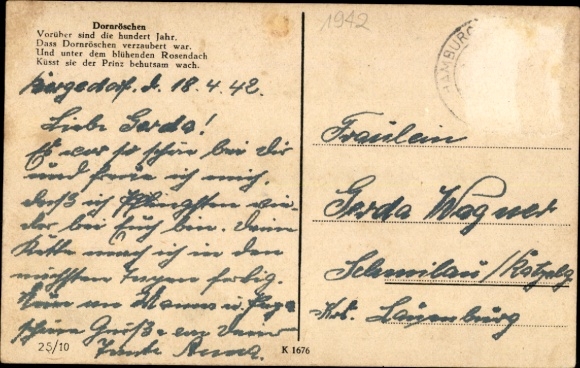 Dornröschen
Vorüber sind die hundert Jahr.
Dass Dornröschen verzaubert war.
Und unter dem blühenden Rosendach
Küsst sie der Prinz behutsam wach.
1942
HAMBURG
Bergedorf, d. 18.4.42.
Liebe Gerda!
Es war so schön bei Dir
und freue ich mich,
daß ich Pfingsten wie-
der bei Euch bin. Deine
Kette mach ich in den
nächsten Tagen fertig.
Nun an Mama u. Papa
schöne Grüße von Deiner
Tante Anna.
Fräulein
Gerda Wagner
Schmilau / Ratzebg
Krs. Lauenburg
25/10
K 1676